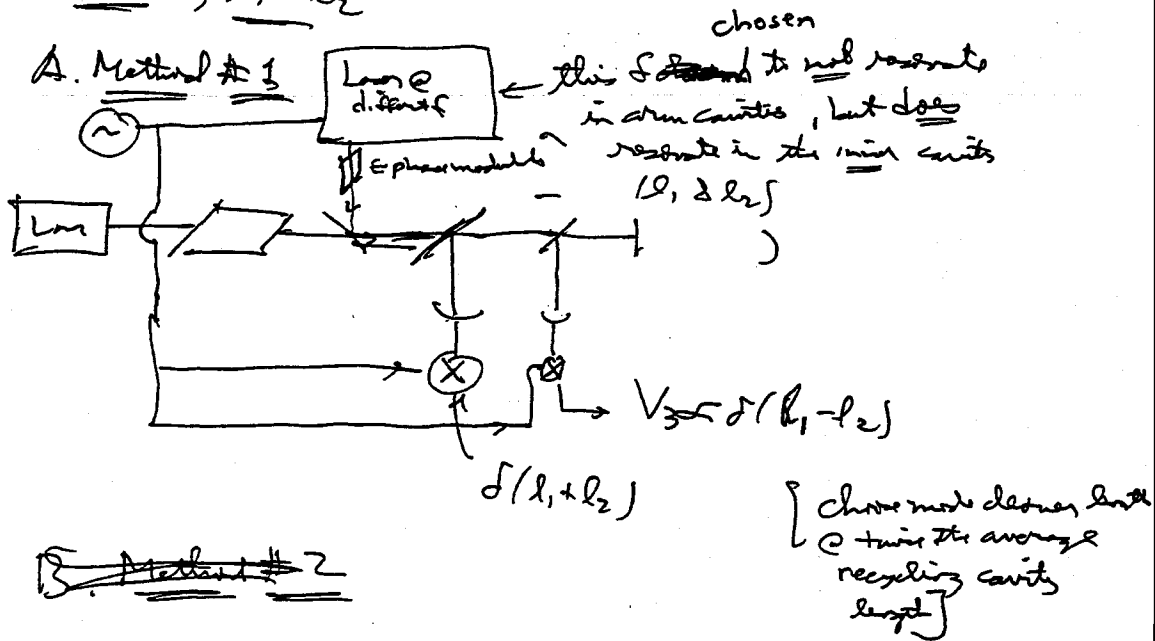 A. Method # 1
Laser @
different f
← this f chosen to not resonate
in arm cavities, but does
resonate in the inner cavity
(l1 & l2)
~
← phase modulated
Laser
V3 ∝ δ(l1-l2)
δ(l1+l2)
[choose mode cleaner length
@ twice the average
recycling cavity
length]
B. Method # 2